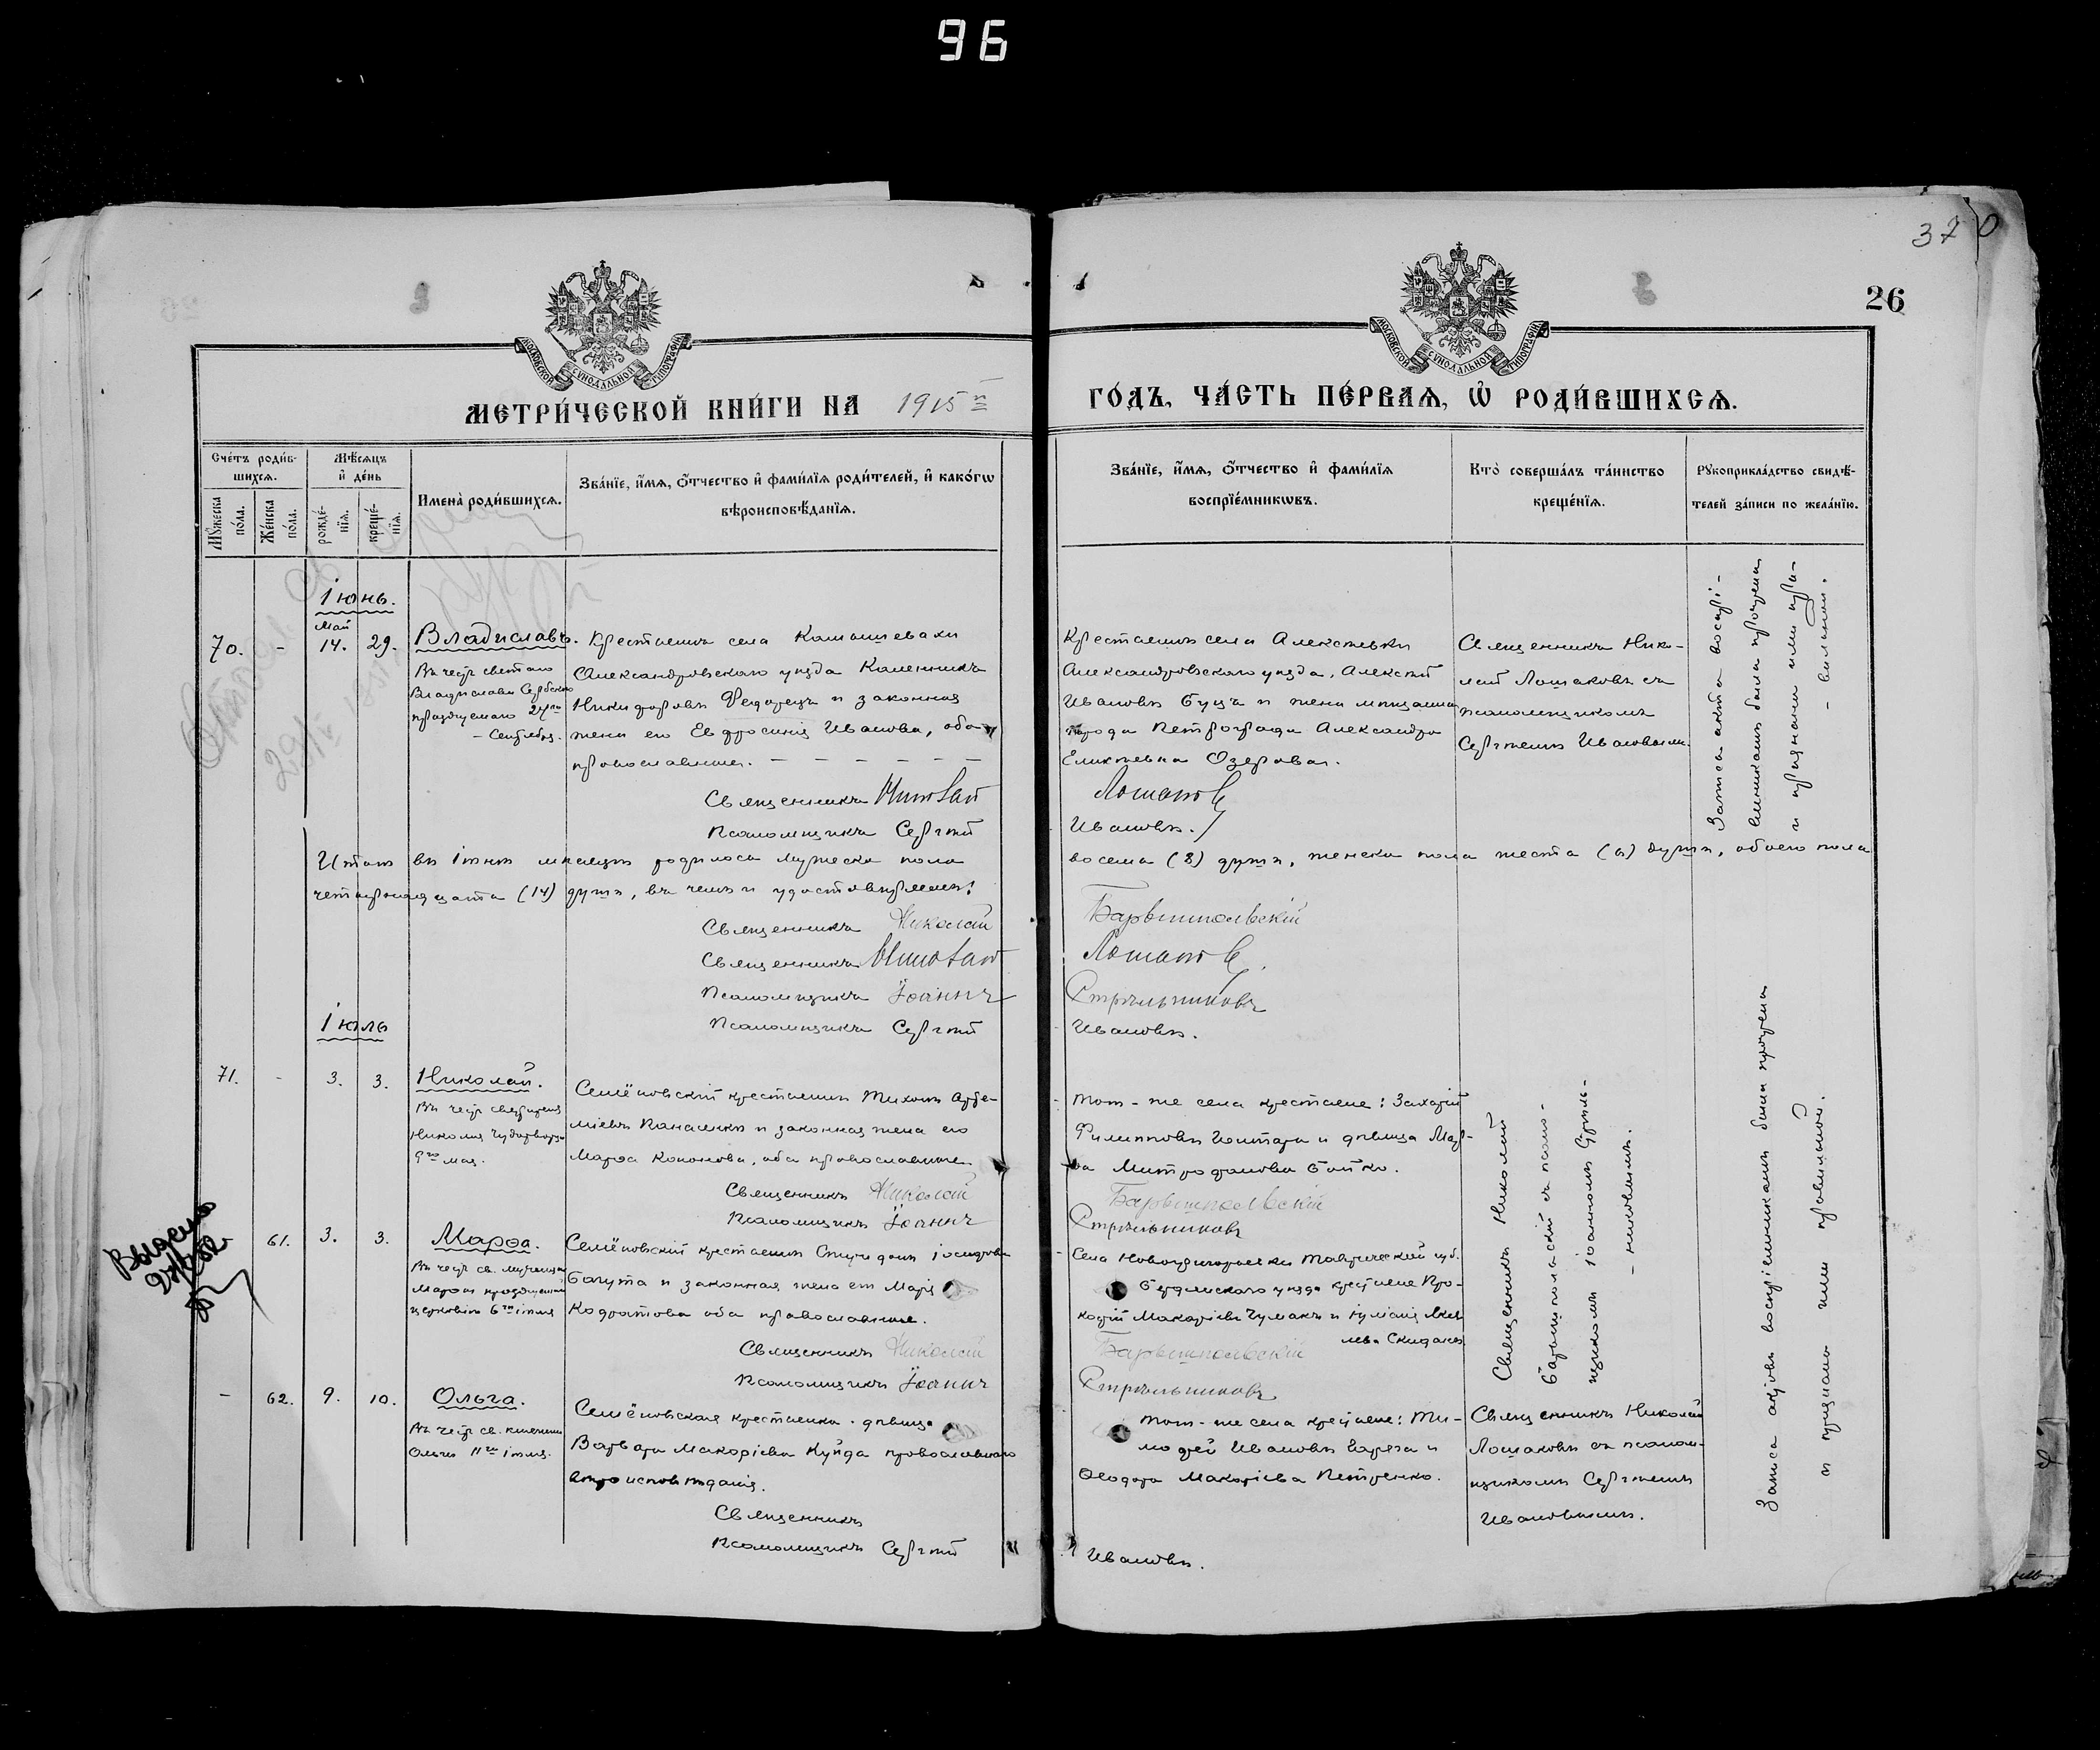 96
370
26
МОСКОВСКОЙ СУНОДАЛЬНОЙ ТИПОГРАФІИ
МОСКОВСКОЙ СУНОДАЛЬНОЙ ТИПОГРАФІИ
МЕТРИ́ЧЕСКОЙ КНИ́ГИ НА 1915 ГО́ДЪ, ЧА́СТЬ ПЕ́РВАѦ, Ѡ҆ РОДИ́ВШИХСѦ.
Сче́тъ роди́в-
шихсѧ.
Мꙋ́жеска по́ла.
Же́нска по́ла.
Мѣ́сѧцъ
и҆ де́нь
рожде́-
нїѧ.
креще́-
нїѧ.
Имена̀ роди́вшихсѧ.
Зва́нїе, и҆́мѧ, ѻ҆́тчество и҆ фами́лїѧ роди́телей, и҆ како́гѡ
вѣроисповѣ́данїѧ.
Зва́нїе, и҆́мѧ, ѻ҆́тчество и҆ фами́лїѧ
воспрїе́мникѡвъ.
Кто̀ соверша́лъ та́инство
креще́нїѧ.
Рꙋкоприкла́дство свидѣ́-
телей за́писи по жела́нїю.
Іюнь.
Май
70.
-
14.
29.
Владиславъ.
Въ честь святаго
Владислава Сербскаго
празднуемаго 24го
- Сентября.
Крестьянинъ села Камышевахи
Александровскаго уѣзда Каленникъ
Никифоровъ Федорецъ и законная
жена его Евфросинія Иванова, оба
православные.
Священникъ Николай
Псаломщикъ Сергѣй
Крестьянинъ села Алексѣевки
Александровскаго уѣзда, Алексѣй
Ивановъ Буцъ и жена мѣщанина
города Петрограда Александра
Озерова.
Лошаковъ
Ивановъ.
Священникъ Нико-
лай Лошаковъ съ
псаломщикомъ
Сергѣемъ Ивановымъ.
Запись акта воспрі-
емникамъ была прочтена
и признана ими пра-
- вильною.
Итого въ Іюнѣ мѣсяцѣ родилось мужеска пола восемь (8) душъ, женска пола шесть (6) душъ, обоего пола
четырнадцать (14) душъ, въ чемъ и удостовѣряемъ:
Священникъ Николай Барвинскольскій
Священникъ Николай Лошаковъ.
Псаломщикъ Іоаннъ Стрѣльниковъ
Псаломщикъ Сергѣй Ивановъ.
Іюль
71.
-
3.
3.
Николай.
Въ честь святителя
Николая Чудотворца
9го мая.
Семёновскій крестьянинъ Тихонъ Арте-
міевъ Панасенко и законная жена его
Марѳа Кононова, оба православные.
Священникъ Николай
Псаломщикъ Іоаннъ
Того-же села крестьяне: Захарій
Филипповъ и дѣвица Мар-
ѳа Митрофанова Бойко.
Стрѣльниковъ
Выдано
61.
3.
3.
Марѳа.
Въ честь св. мученицы
Марѳы празднуемой
церковью 6го іюля
Семёновскій крестьянинъ Спиридонъ
и законная жена его Марія
Кодратова оба православные.
Священникъ Николай
Псаломщикъ Іоаннъ
Села Новогригорьевки Таврической губ.
Бердянскаго уѣзда крестьяне Про-
кофій Макаріевъ Чумакъ и
Стрѣльниковъ
Священникъ Николай
съ псало-
мщикомъ Іоанномъ Стрѣль-
- никовымъ.
-
62.
9.
10.
Ольга.
Въ честь св. княгини
Ольги 11го іюля.
Семёновская крестьянка дѣвица
Варвара Макаріева Кунда православнаго
вѣроисповѣданія.
Священникъ
Псаломщикъ Сергѣй
Того-же села крестьяне: Ти-
мофей Ивановъ и
Ѳеодора Макаріева Петренко.
Ивановъ.
Священникъ Николай
Лошаковъ съ псалом-
щикомъ Сергѣемъ
Ивановымъ.
Запись актовъ воспріемникамъ была прочтена
и признана ими правильной.